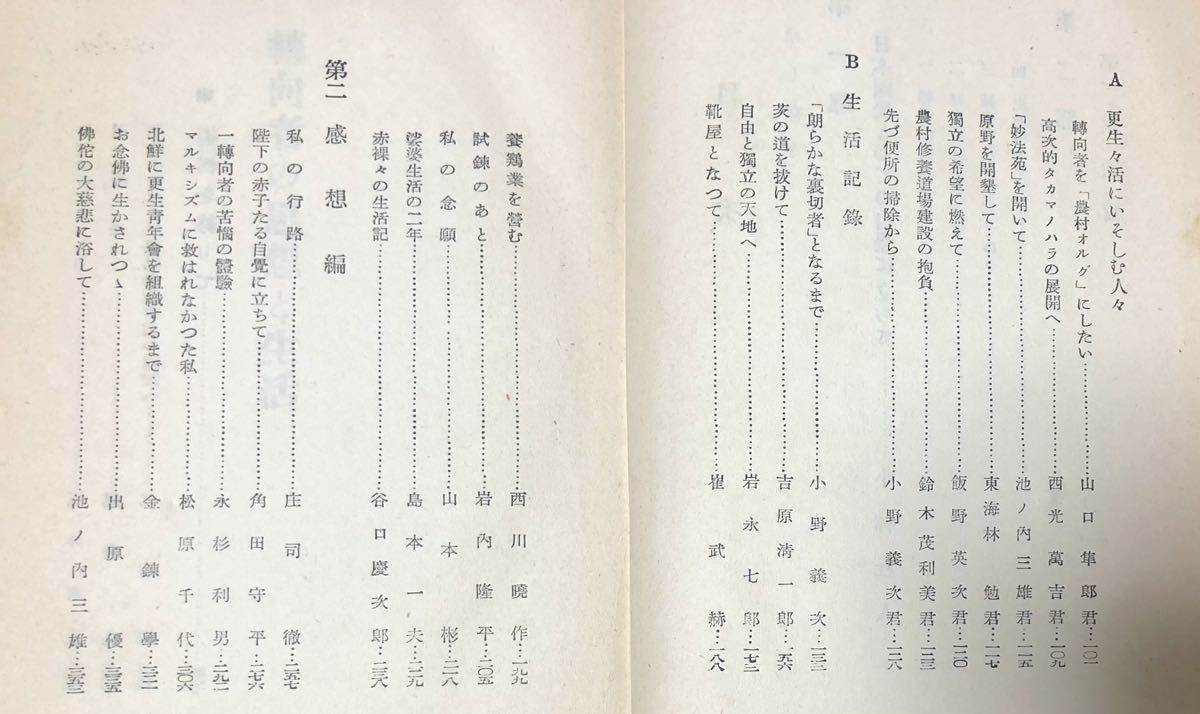 A 更生々活にいそしむ人々
轉向者を「農村オルグ」にしたい……山口隼郎君…一〇一
高次的タカマノハラの展開へ……西光萬吉君…一〇九
「妙法苑」を開いて……池ノ內三雄君…一一五
原野を開墾して……東海林勉君…一一七
獨立の希望に燃えて……飯野英次君…一二〇
農村修養道場建設の抱負……鈴木茂利美君…一二三
先づ便所の掃除から……小野義次君…一二八
B 生活記錄
「朗らかな裏切者」となるまで……小野義次…一三三
茨の道を拔けて……吉原清一郎…一五六
自由と獨立の天地へ……岩永七郎…一七二
靴屋となつて……崔武赫…一八八
養鷄業を營む……西川曉作…一九九
試鍊のあと……岩內隆平…二〇五
私の念願……山本彬…二一八
娑婆生活の二年……島本一夫…二二九
赤裸々の生活記……谷口慶次郎…二三八
第二 感想編
私の行路……庄司徹…二五七
陛下の赤子たる自覺に立ちて……角田守平…二七六
一轉向者の苦惱の體驗……永杉利男…二九二
マルキシズムに救はれなかつた私……松原千代…三〇六
北鮮に更生靑年會を組織するまで……金鍊學…三二一
お念佛に生かされつゝ……出原優…三三五
佛佗の大慈悲に浴して……池ノ內三雄…三五三